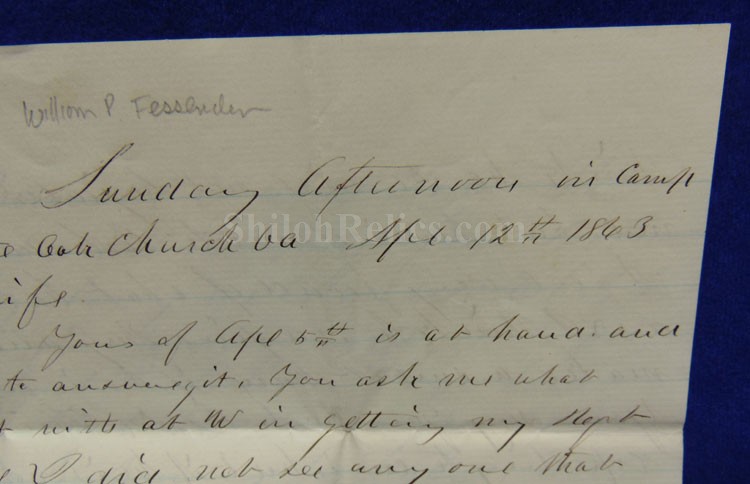 William P. Fessenden
Sunday Afternoon in Camp
ShilohRelics.com
Oak Church Va Apl 12th 1863
ife
Yours of Apl 5th is at hand and
answer it. You ask me what
with at W in getting my
I did not see any one that